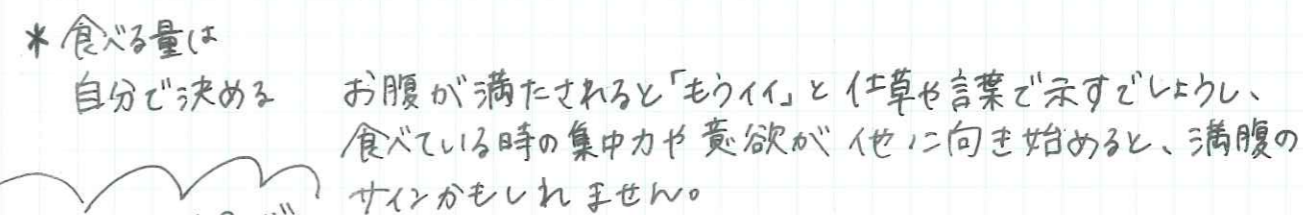 *食べる量は
自分で決める
お腹が満たされると「もうイイ」と仕草や言葉で示すでしょうし、
食べている時の集中力や意欲が他に向き始めると、満腹の
サインかもしれません。